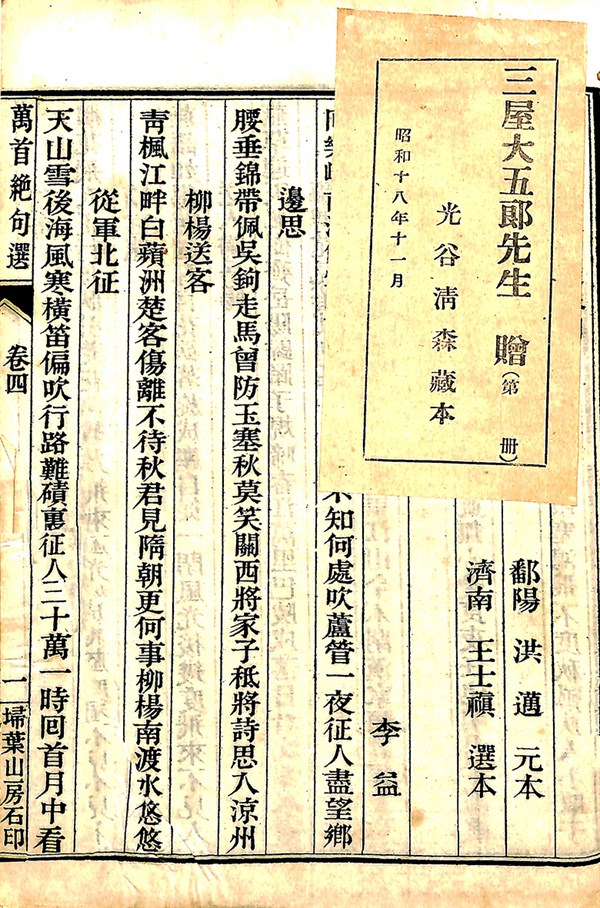 三屋大五郎先生 贈(第 册)
光谷淸森藏本
昭和十八年十一月
鄱陽 洪邁 元本
濟南 王士禛 選本
李益
不知何處吹蘆管一夜征人盡望鄉
邊思
腰垂錦帶佩吳鉤走馬曾防玉塞秋莫笑關西將家子秪將詩思入涼州
柳楊送客
靑楓江畔白蘋洲楚客傷離不待秋君見隋朝更何事柳楊南渡水悠悠
從軍北征
天山雪後海風寒橫笛偏吹行路難磧裏征人三十萬一時回首月中看
萬首絕句選
卷四
一
埽葉山房石印